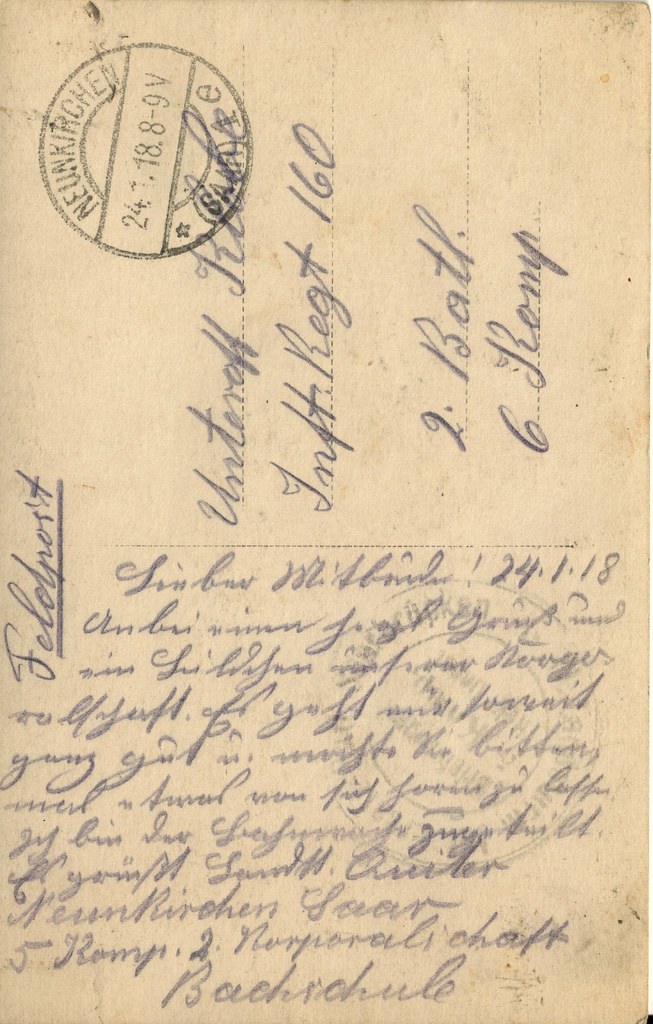 NEUNKIRCHEN
24.1.18.8-9 V
(SAAR) e
Feldpost
Unteroff
Inft. Regt 160
2. Batl.
6 Komp
Lieber Mitbruder! 24.1.18
Anbei einen herzl Gruß und
ein Bildchen unserer Korpo-
ralschaft. Es geht mir soweit
ganz gut u. möchte Sie bitten,
mal etwas von sich hören zu lassen.
Ich bin der Bahnwache zugeteilt.
Es grüßt Landst.
Neunkirchen Saar
5 Komp. 2. Korporalschaft
Bachschule